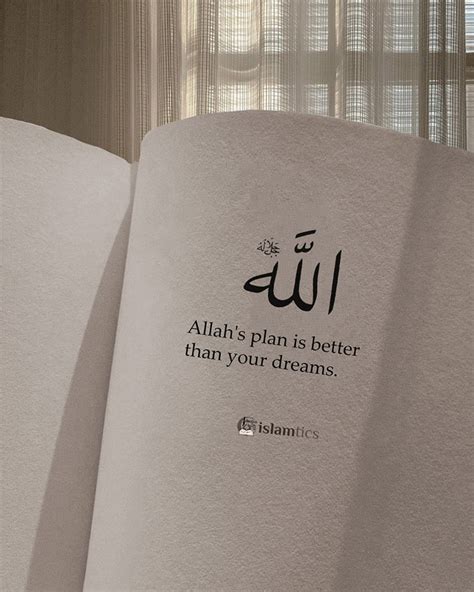 اللَّه جل جلاله
Allah's plan is better
than your dreams.
islamtics